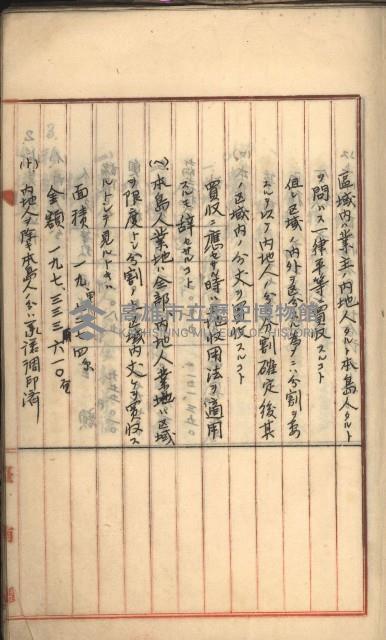 区域内ハ業主ノ内地人タルト本島人タルト
ヲ問ハス一律平等ニ買収スルコト
但シ区域ノ内外ヲ区分スル為メニハ分割ヲ為
スヲ以テ内地人ノ分ハ分割確定後其
ノ区域内ノ分丈ヲ買収スルコト
買収ニ應セサル時ハ土地収用法ヲ適用
スルモ辞セサルコト
(ヘ)本島人業地ハ全部、内地人業地ハ区域
ヲ限度トシ分割シテ区域内丈ケヲ買収ス
ルトシテ見ルトキハ
面積 一九甲 七四
金額 一九七、三三三円六一〇
(ト)内地人ヲ除キ本島人ノ分ハ承諾調印済
高雄市立歷史博物館
KAOHSIUNG MUSEUM OF HISTORY
臺南